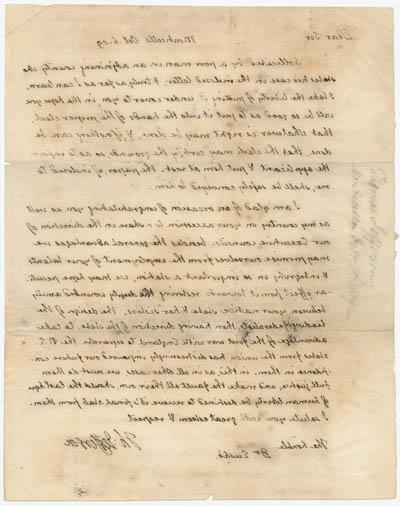 Dear Sir Monticello Oct. 6. 09
Sollicited by a poor man in an adjoining county who
states his case in the inclosed letter, & truly as far as I can learn,
I take the liberty of putting it under cover to you, in the hope you
will be so good as to put it into the hands of the proper clerk
that whatever is right may be done & if nothing can be
done that the clerk may certify the grounds so as to inform
the applicant & put him at rest. the paper if inclosed to
me shall be safely conveyed to him.
I am glad of an occasion of congratulating you as well
as my country on your accession to a share in the direction of
our Executive councils. besides the general advantages we
may promise ourselves from the employment of your talents
& integrity in so important a station, we may hope peculiar
effect from it towards restoring the deeply wounded amity
between your native state & her sisters. the design of the
leading federalists then having direction of the state to take
advantage of the first war with England to separate the N.E.
states from the union has distressingly impaired our future con-
fidence in them. in this, as in all other cases, we must do them
full justice, and make the fault all their own, should the last hope
of human liberty be destined to recieve it's final stab from them.
I salute you with great esteem & respect
Th: Jefferson
The honble
Dr. Eustis
Thomas Jefferson